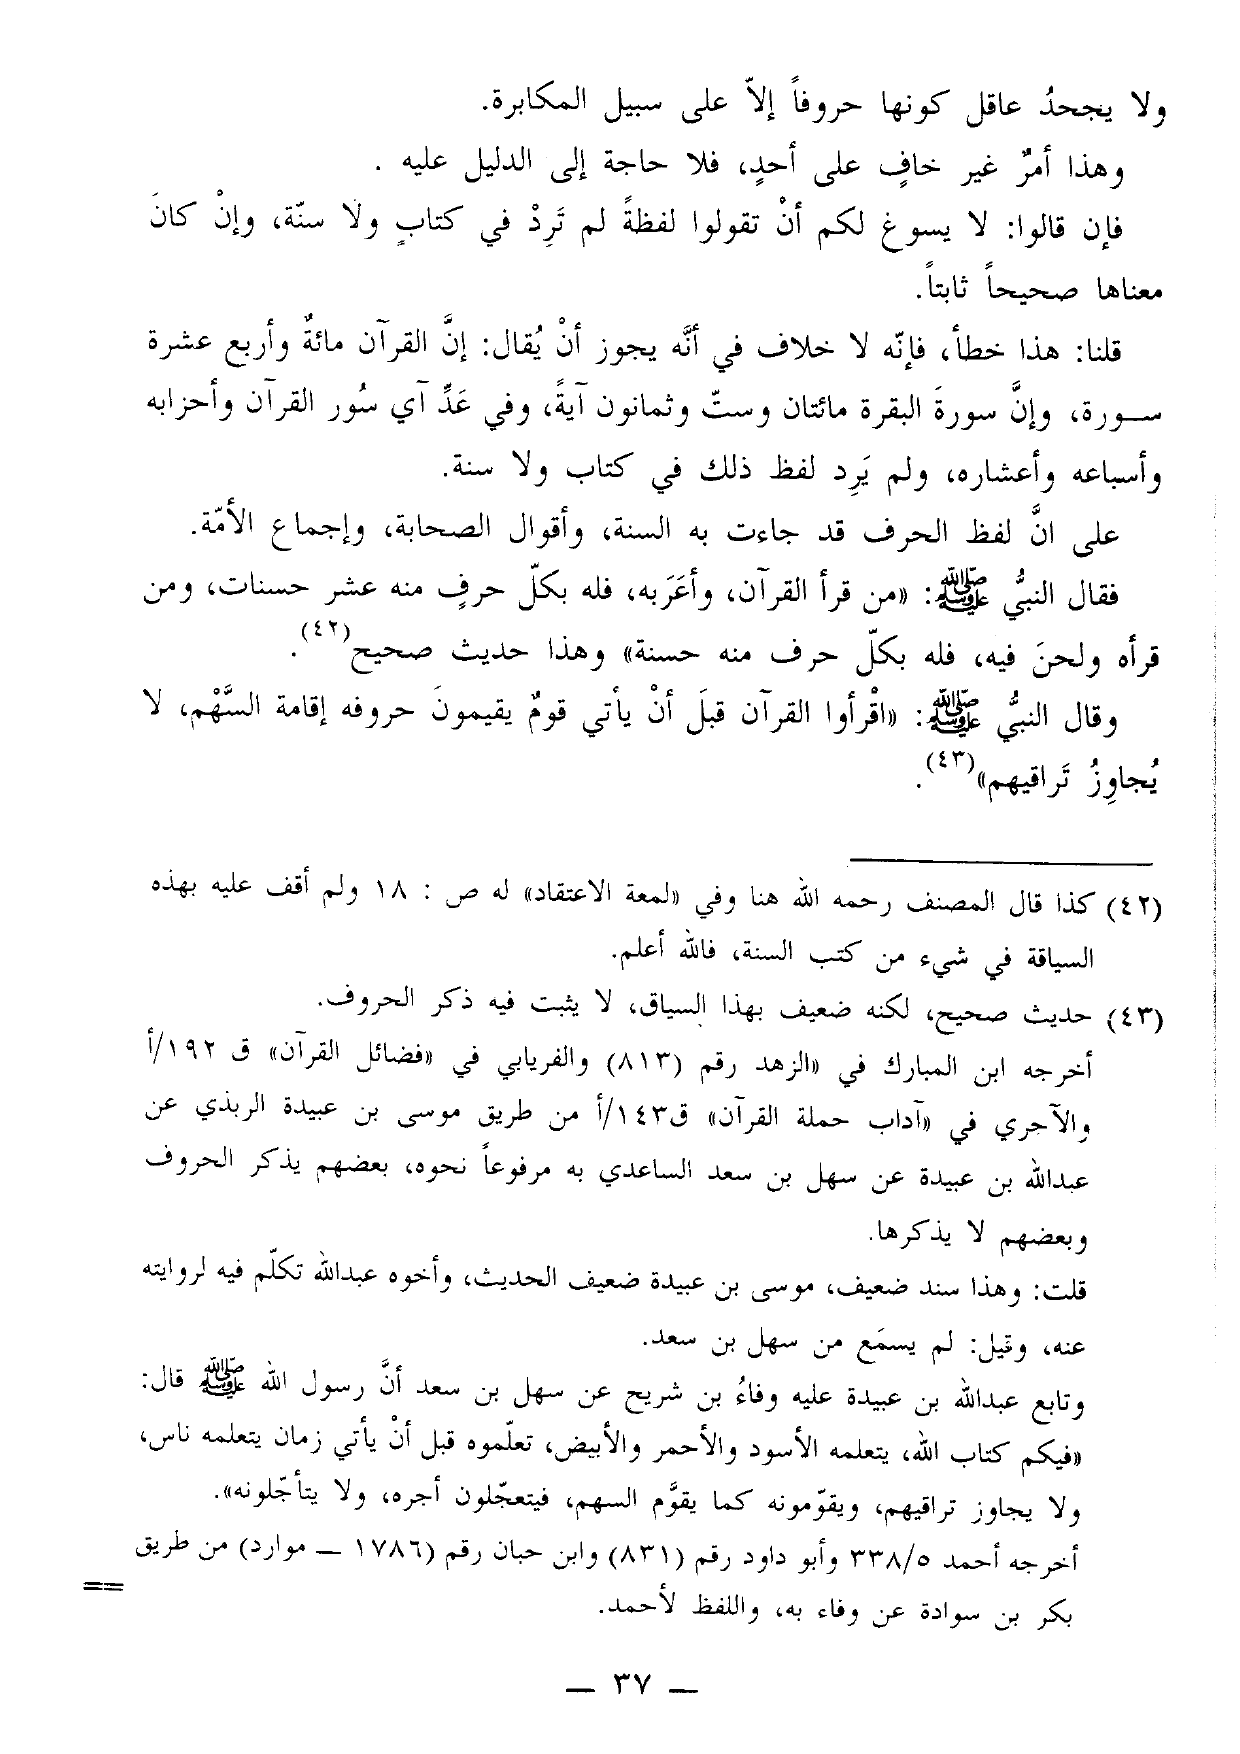 ولا يجحدُ عاقل كونها حروفاً إلاّ على سبيل المكابرة.
وهذا أمرٌ غير خافٍ على أحدٍ، فلا حاجة إلى الدليل عليه .
فإن قالوا: لا يسوغ لكم أنْ تقولوا لفظةً لم تَرِدْ في كتابٍ ولا سنّة، وإنْ كانَ
معناها صحيحاً ثابتاً.
قلنا: هذا خطأ، فإنّه لا خلاف في أنَّه يجوز أنْ يُقال: إنَّ القرآن مائةٌ وأربع عشرة
سورة، وإنَّ سورةَ البقرة مائتان وستّ وثمانون آيةً، وفي عَدِّ آي سُور القرآن وأحزابه
وأسباعه وأعشاره، ولم يَرِد لفظ ذلك في كتاب ولا سنة.
على انَّ لفظ الحرف قد جاءت به السنة، وأقوال الصحابة، وإجماع الأمّة.
فقال النبيُّ ﷺ: «من قرأ القرآن، وأعَرَبه، فله بكلّ حرفٍ منه عشر حسنات، ومن
قرأه ولحنَ فيه، فله بكلّ حرف منه حسنة» وهذا حديث صحيح(٤٢).
وقال النبيُّ ﷺ: «اقْرأوا القرآن قبلَ أنْ يأتي قومٌ يقيمونَ حروفه إقامة السَّهْم، لا
يُجاوِزُ تَراقيهم»(٤٣).
(٤٢) كذا قال المصنف رحمه الله هنا وفي «لمعة الاعتقاد» له ص : ١٨ ولم أقف عليه بهذه
السياقة في شيء من كتب السنة، فالله أعلم.
(٤٣) حديث صحيح، لكنه ضعيف بهذا السياق، لا يثبت فيه ذكر الحروف.
أخرجه ابن المبارك في «الزهد رقم (٨١٣) والفريابي في «فضائل القرآن» ق ١٩٢/أ
والآجري في «آداب حملة القرآن» ق١٤٣/أ من طريق موسى بن عبيدة الربذي عن
عبدالله بن عبيدة عن سهل بن سعد الساعدي به مرفوعاً نحوه، بعضهم يذكر الحروف
وبعضهم لا يذكرها.
قلت: وهذا سند ضعيف، موسى بن عبيدة ضعيف الحديث، وأخوه عبدالله تكلّم فيه لروايته
عنه، وقيل: لم يسمَع من سهل بن سعد.
وتابع عبدالله بن عبيدة عليه وفاءُ بن شريح عن سهل بن سعد أنَّ رسول الله ﷺ قال:
«فيكم كتاب الله، يتعلمه الأسود والأحمر والأبيض، تعلّموه قبل أنْ يأتي زمان يتعلمه ناس،
ولا يجاوز تراقيهم، ويقوّمونه كما يقوَّم السهم، فيتعجّلون أجره، ولا يتأجّلونه».
أخرجه أحمد ٣٣٨/٥ وأبو داود رقم (٨٣١) وابن حبان رقم (١٧٨٦ ــ موارد) من طريق
بكر بن سوادة عن وفاء به، واللفظ لأحمد.
==
— ٣٧ —